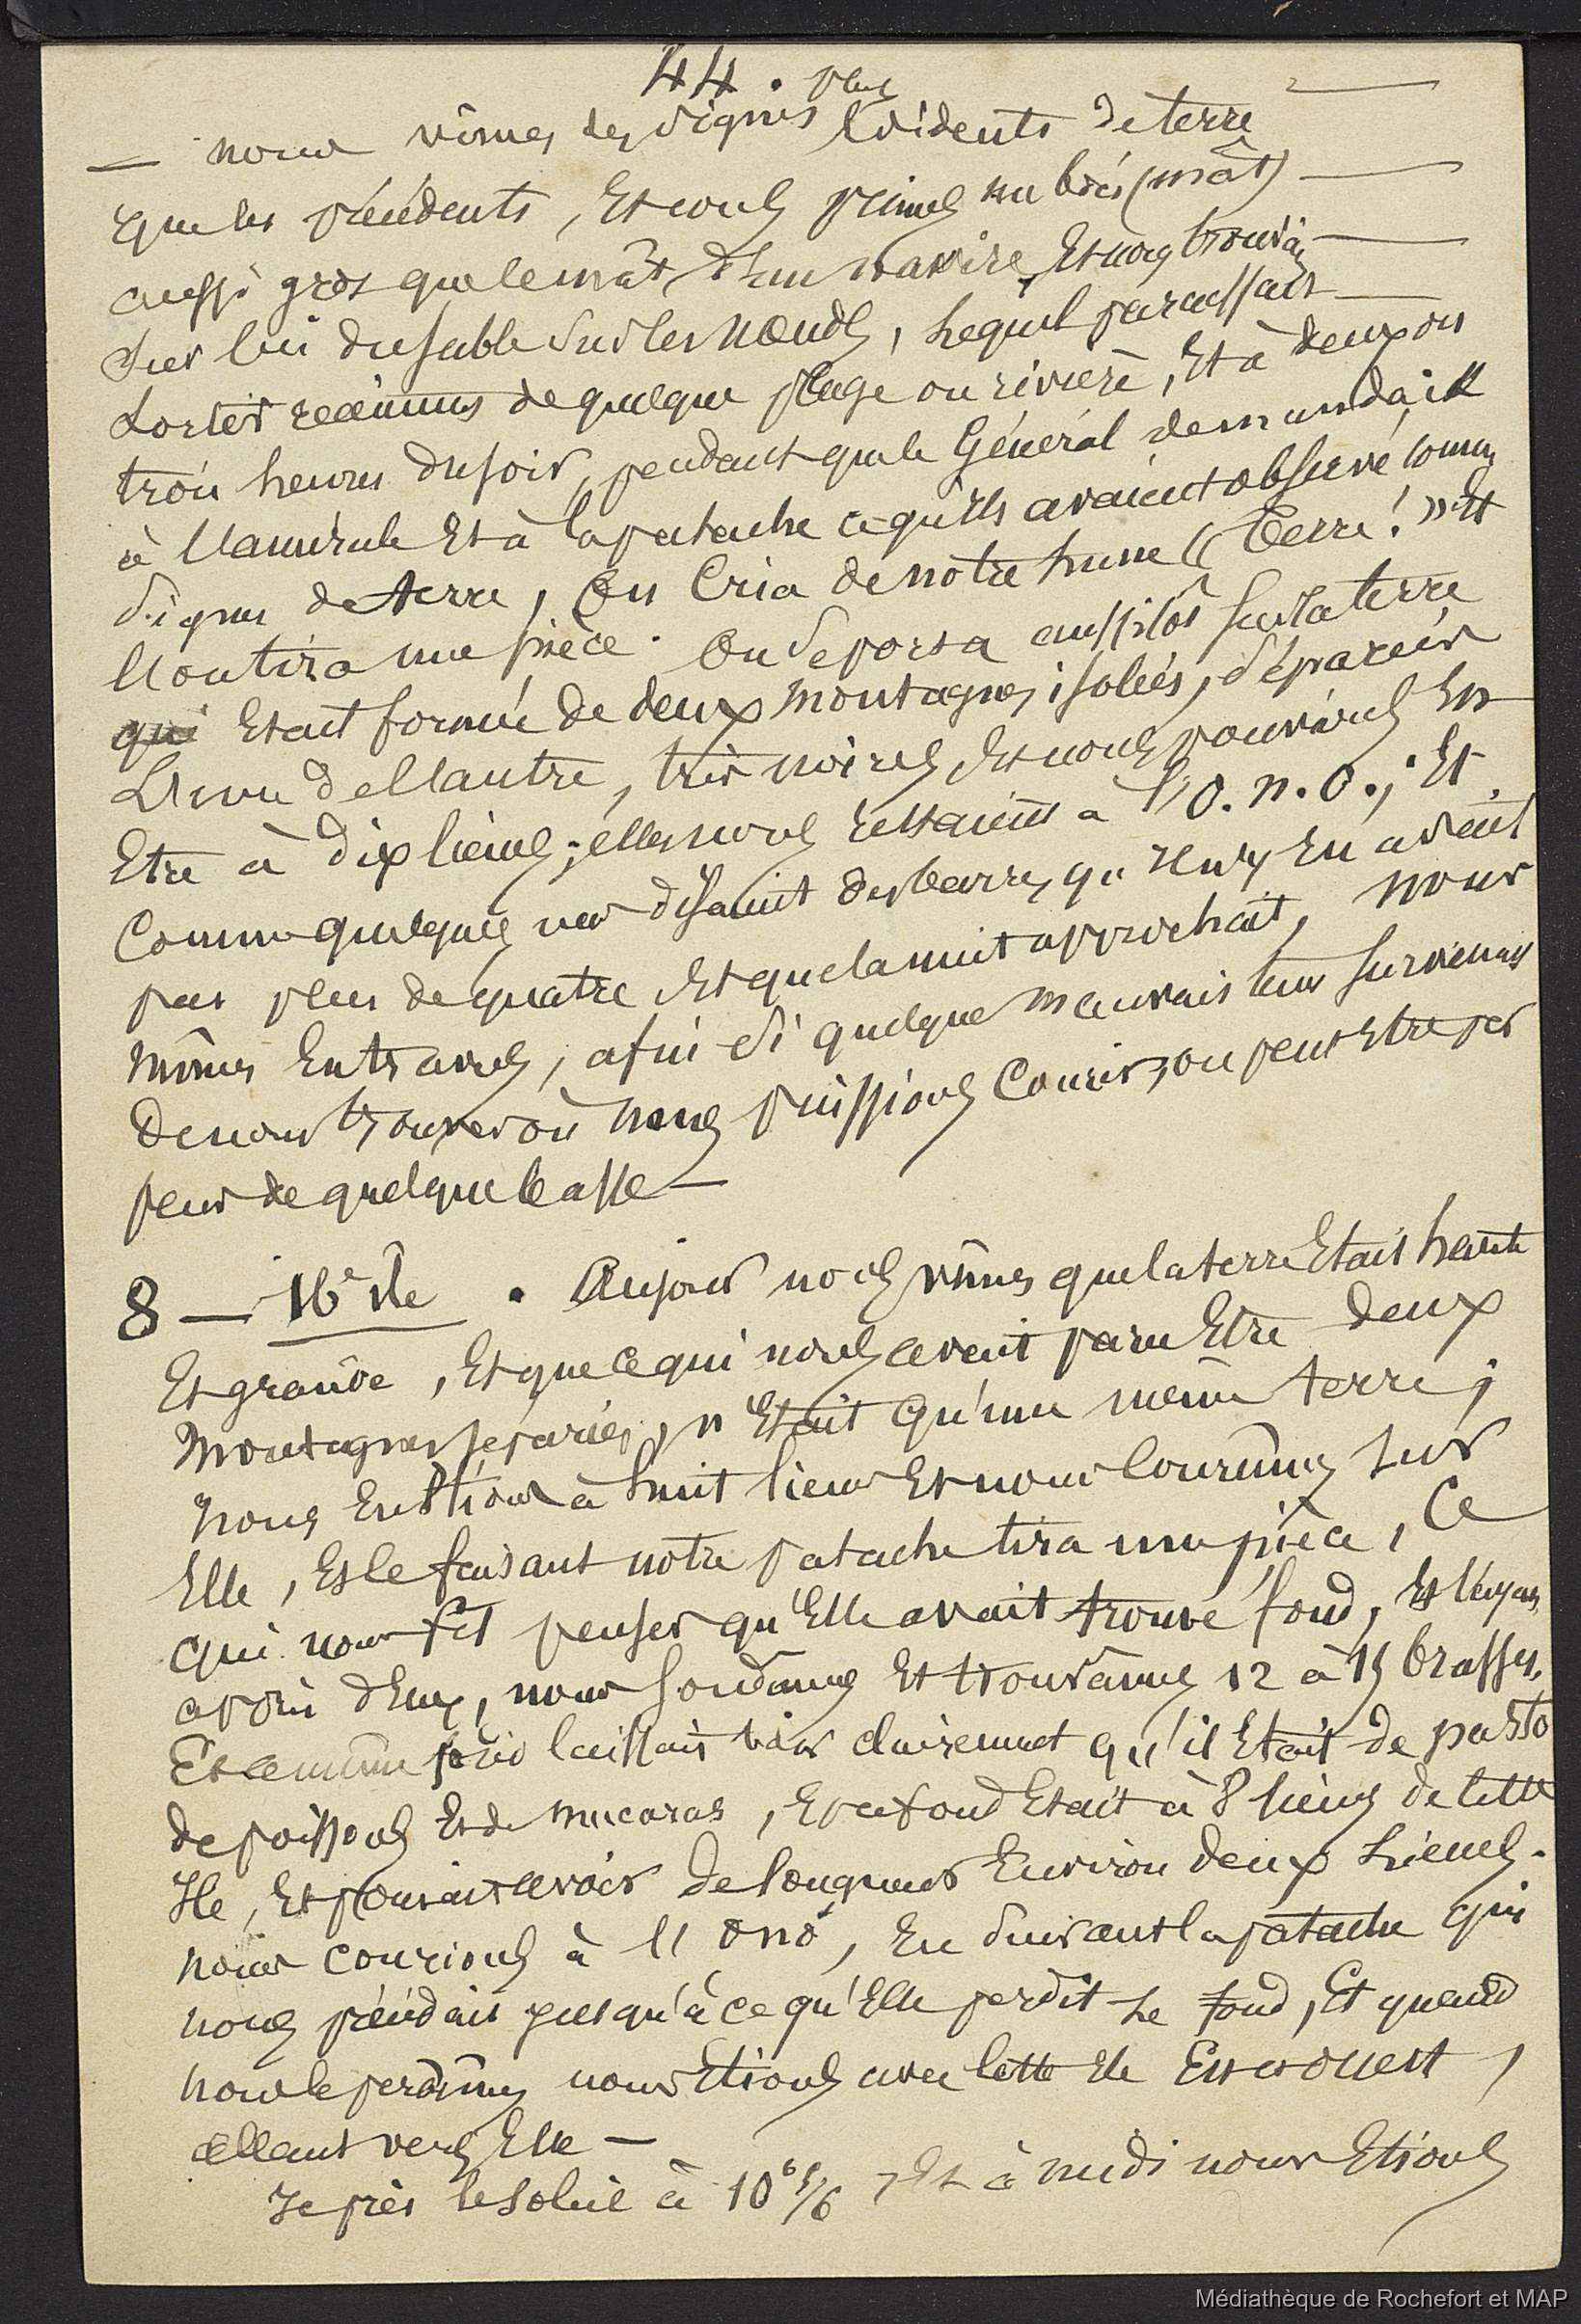 44.
plus
— nous vîmes des signes évidents de terre —
que les précédents, Et nous prîmes un bois (mât) —
aussi gros que le mât d'un navire, Et nous trouvâ —
sur lui du sable sur les nœuds, lequel paraissait —
sorter de quelque plage ou rivière, Et à deux ou
trois heures du soir, pendant que le Général demandait
à l'amirale Et à la patache ce qu'ils avaient observé comme
signes de terre, On Cria de notre hune « Terre! » Et
l'on tira une pièce. On se porsa aussitôt sur la terre
qui Etait formée de deux montagnes isolées, séparées
L'une de l'autre, très noires, Et nous pouvions En
Etre à dix lieues; elles nous restaient à l'O.N.O.; Et
Comme quelques uns disaient des barres, qu'il n'y En avait
pas plus de quatre Et que la nuit approchait, nous
mîmes En travers, afin si quelque mauvais tems survenait
de nous trouver où nous puissions Courir, ou peut Etre par
peur de quelque basse —
8 — 16e île . Au jour nous vîmes que la terre Etait haute
Et grande, Et que ce qui nous avait paru Etre deux
montagnes séparées, n'Etait qu'une même terre;
nous En Etions à huit lieues Et nous Courûmes sur
Elle, Et le faisant notre patache tira une pièce, Ce
qui nous fit penser qu'Elle avait trouvé fond, Et l'ayant
appris d'Eux, nous sondâmes Et trouvâmes 12 à 15 brasses,
Et ce même laissait voir clairement qu'il Etait de pasto
de poissons Et de mucaras, Et ce fond Etait à 8 lieues de cette
Ile, Et pouvait avoir de longueur Environ deux lieues.
nous courions à l'ONO, En suivant la patache qui
nous jusqu'à ce qu'Elle perdit le fond, Et quand
nous le perdîmes nous Etions avec cette île Est ouest,
allant vers Elle —
Je pris le soleil à 10° 5/6, Et à midi nous Etions
Médiathèque de Rochefort et MAP